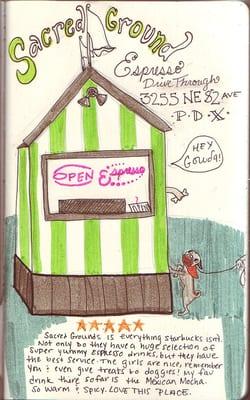 Sacred Ground
Espresso
Drive Through
3255 NE 82 AVE
·P·D·X·
HEY
Gouda!
OPEN Espresso
Sacred Grounds is everything starbucks isn't.
Not only do they have a huge selection of
super yummy espresso drinks, but they have
the best service. The girls are nice, remember
you & even give treats to doggies! My fav
drink there so far is the Mexican Mocha.
So warm & spicy. LOVE THIS PLACE.